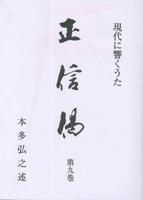 現代に響くうた
正信偈
第九巻
本多弘之述